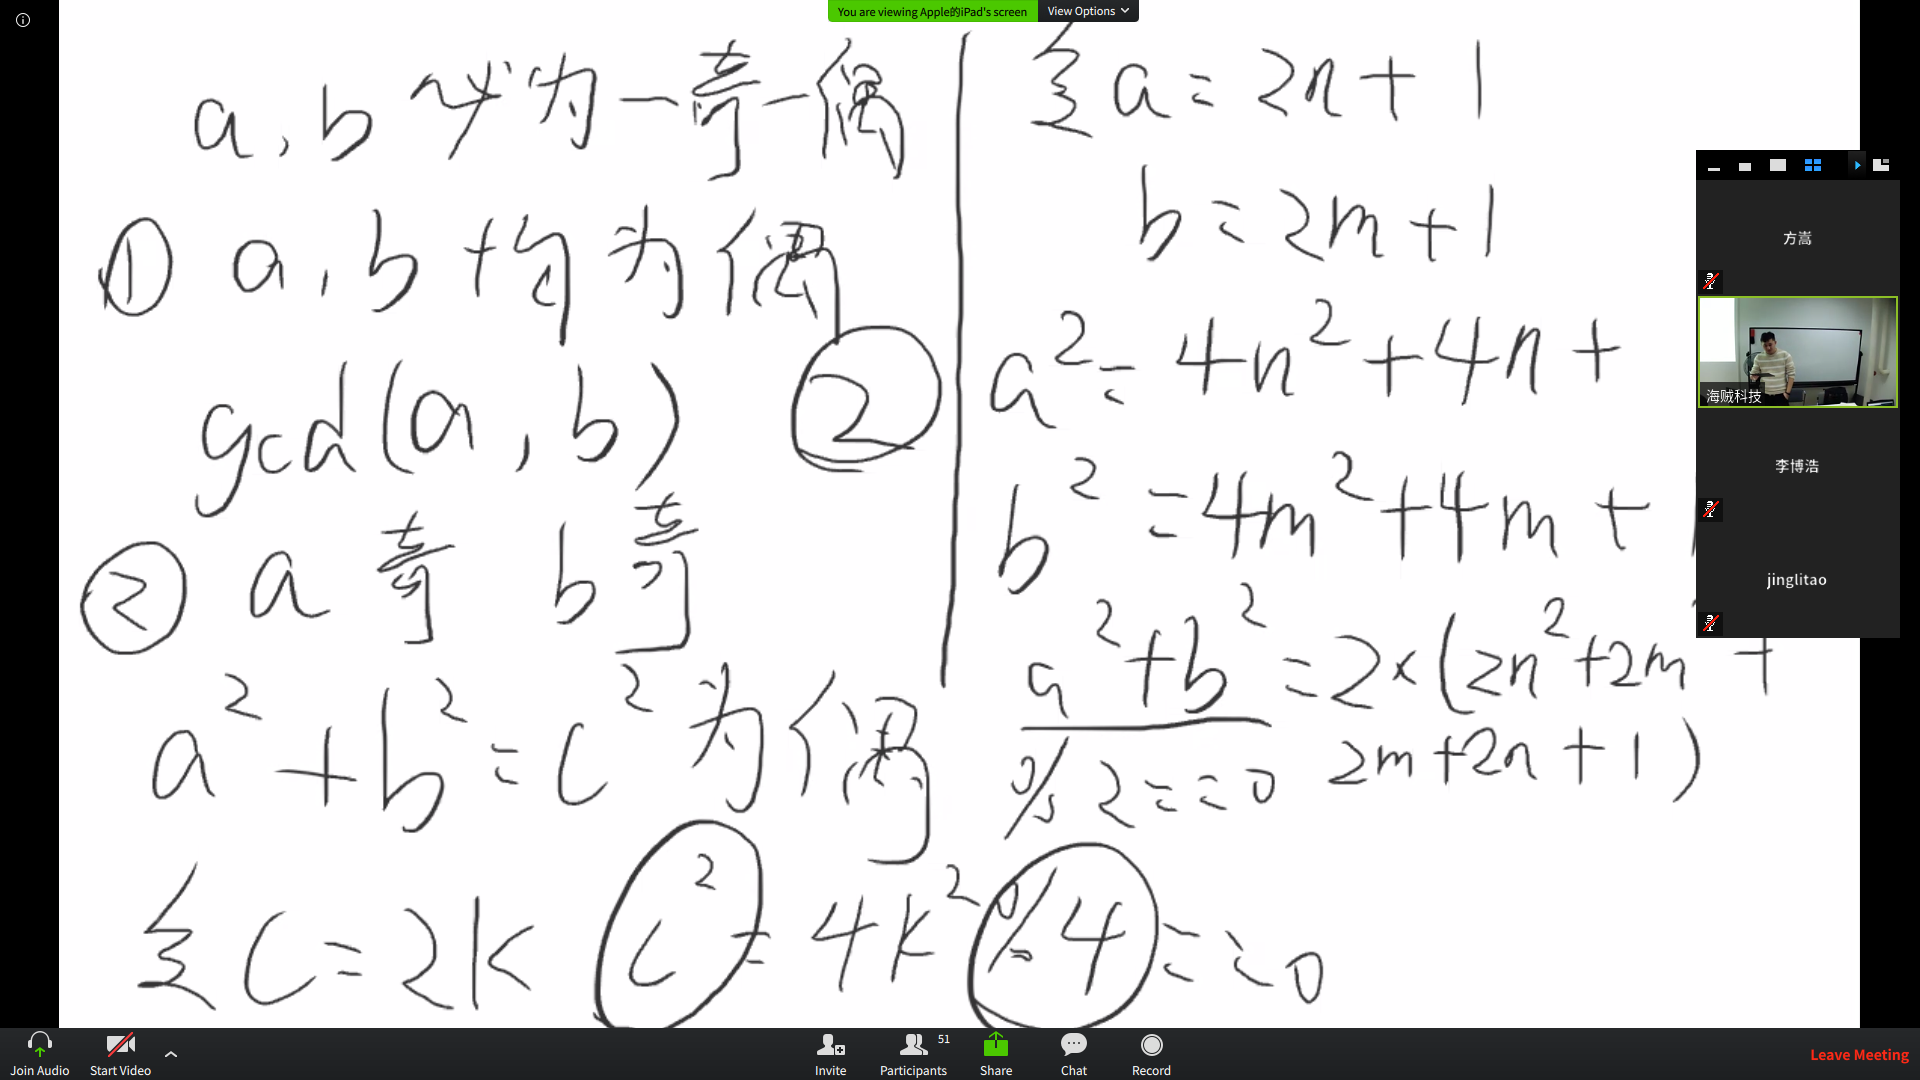 You are viewing Apple的iPad's screen
View Options
a, b 必为一奇一偶
① a, b 均为偶
gcd(a, b) ②
② a 奇 b 奇
a²+b²=c² 为偶
令 c=2k c²=4k² %4==0
令 a=2n+1
b=2m+1
a²=4n²+4n+
b²=4m²+4m+
a²+b²=2×(2n²+2m²+
%2==0 2m+2n+1)
方嵩
海贼科技
李博浩
jinglitao
Join Audio
Start Video
Invite
Participants
51
Share
Chat
Record
Leave Meeting